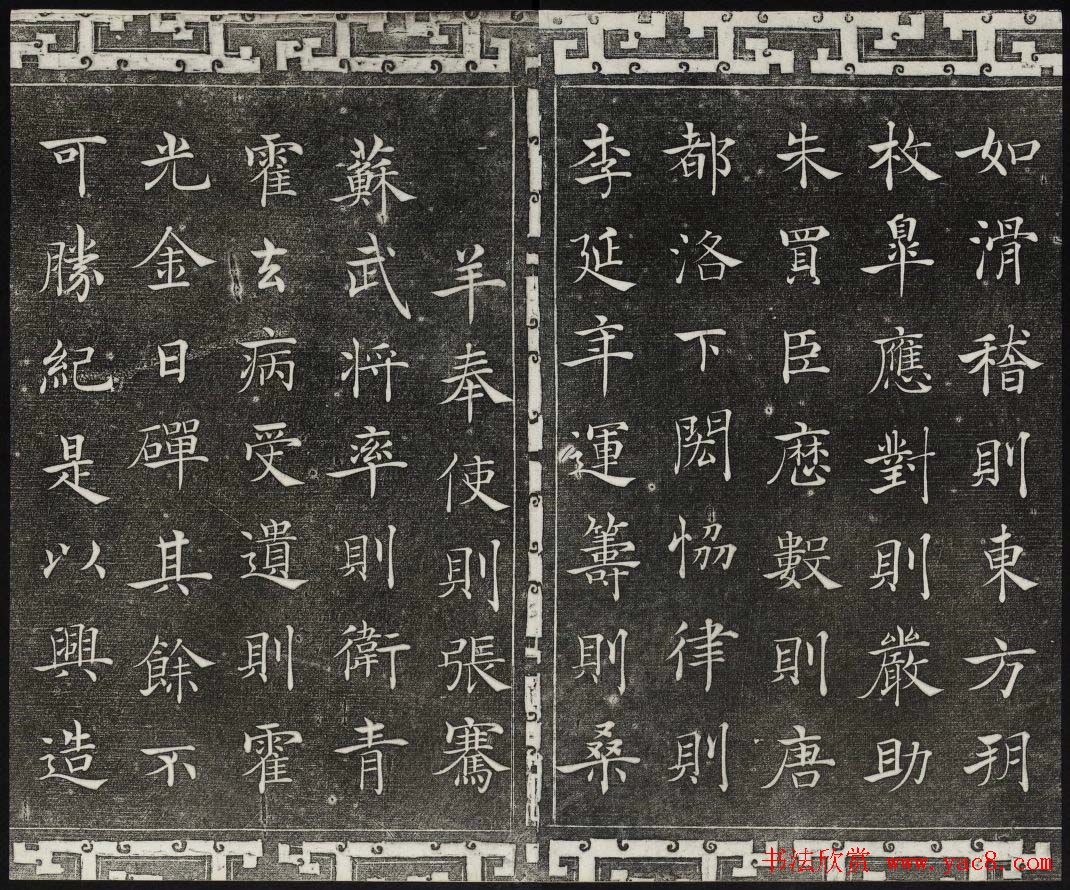 如滑稽則東方朔
枚皐應對則嚴助
朱買臣歷數則唐
都洛下閎恊律則
李延年運籌則桑
羊奉使則張騫
蘇武将率則衛青
霍去病受遺則霍
光金日磾其餘不
可勝紀是以興造
书法欣赏 www.yac8.com